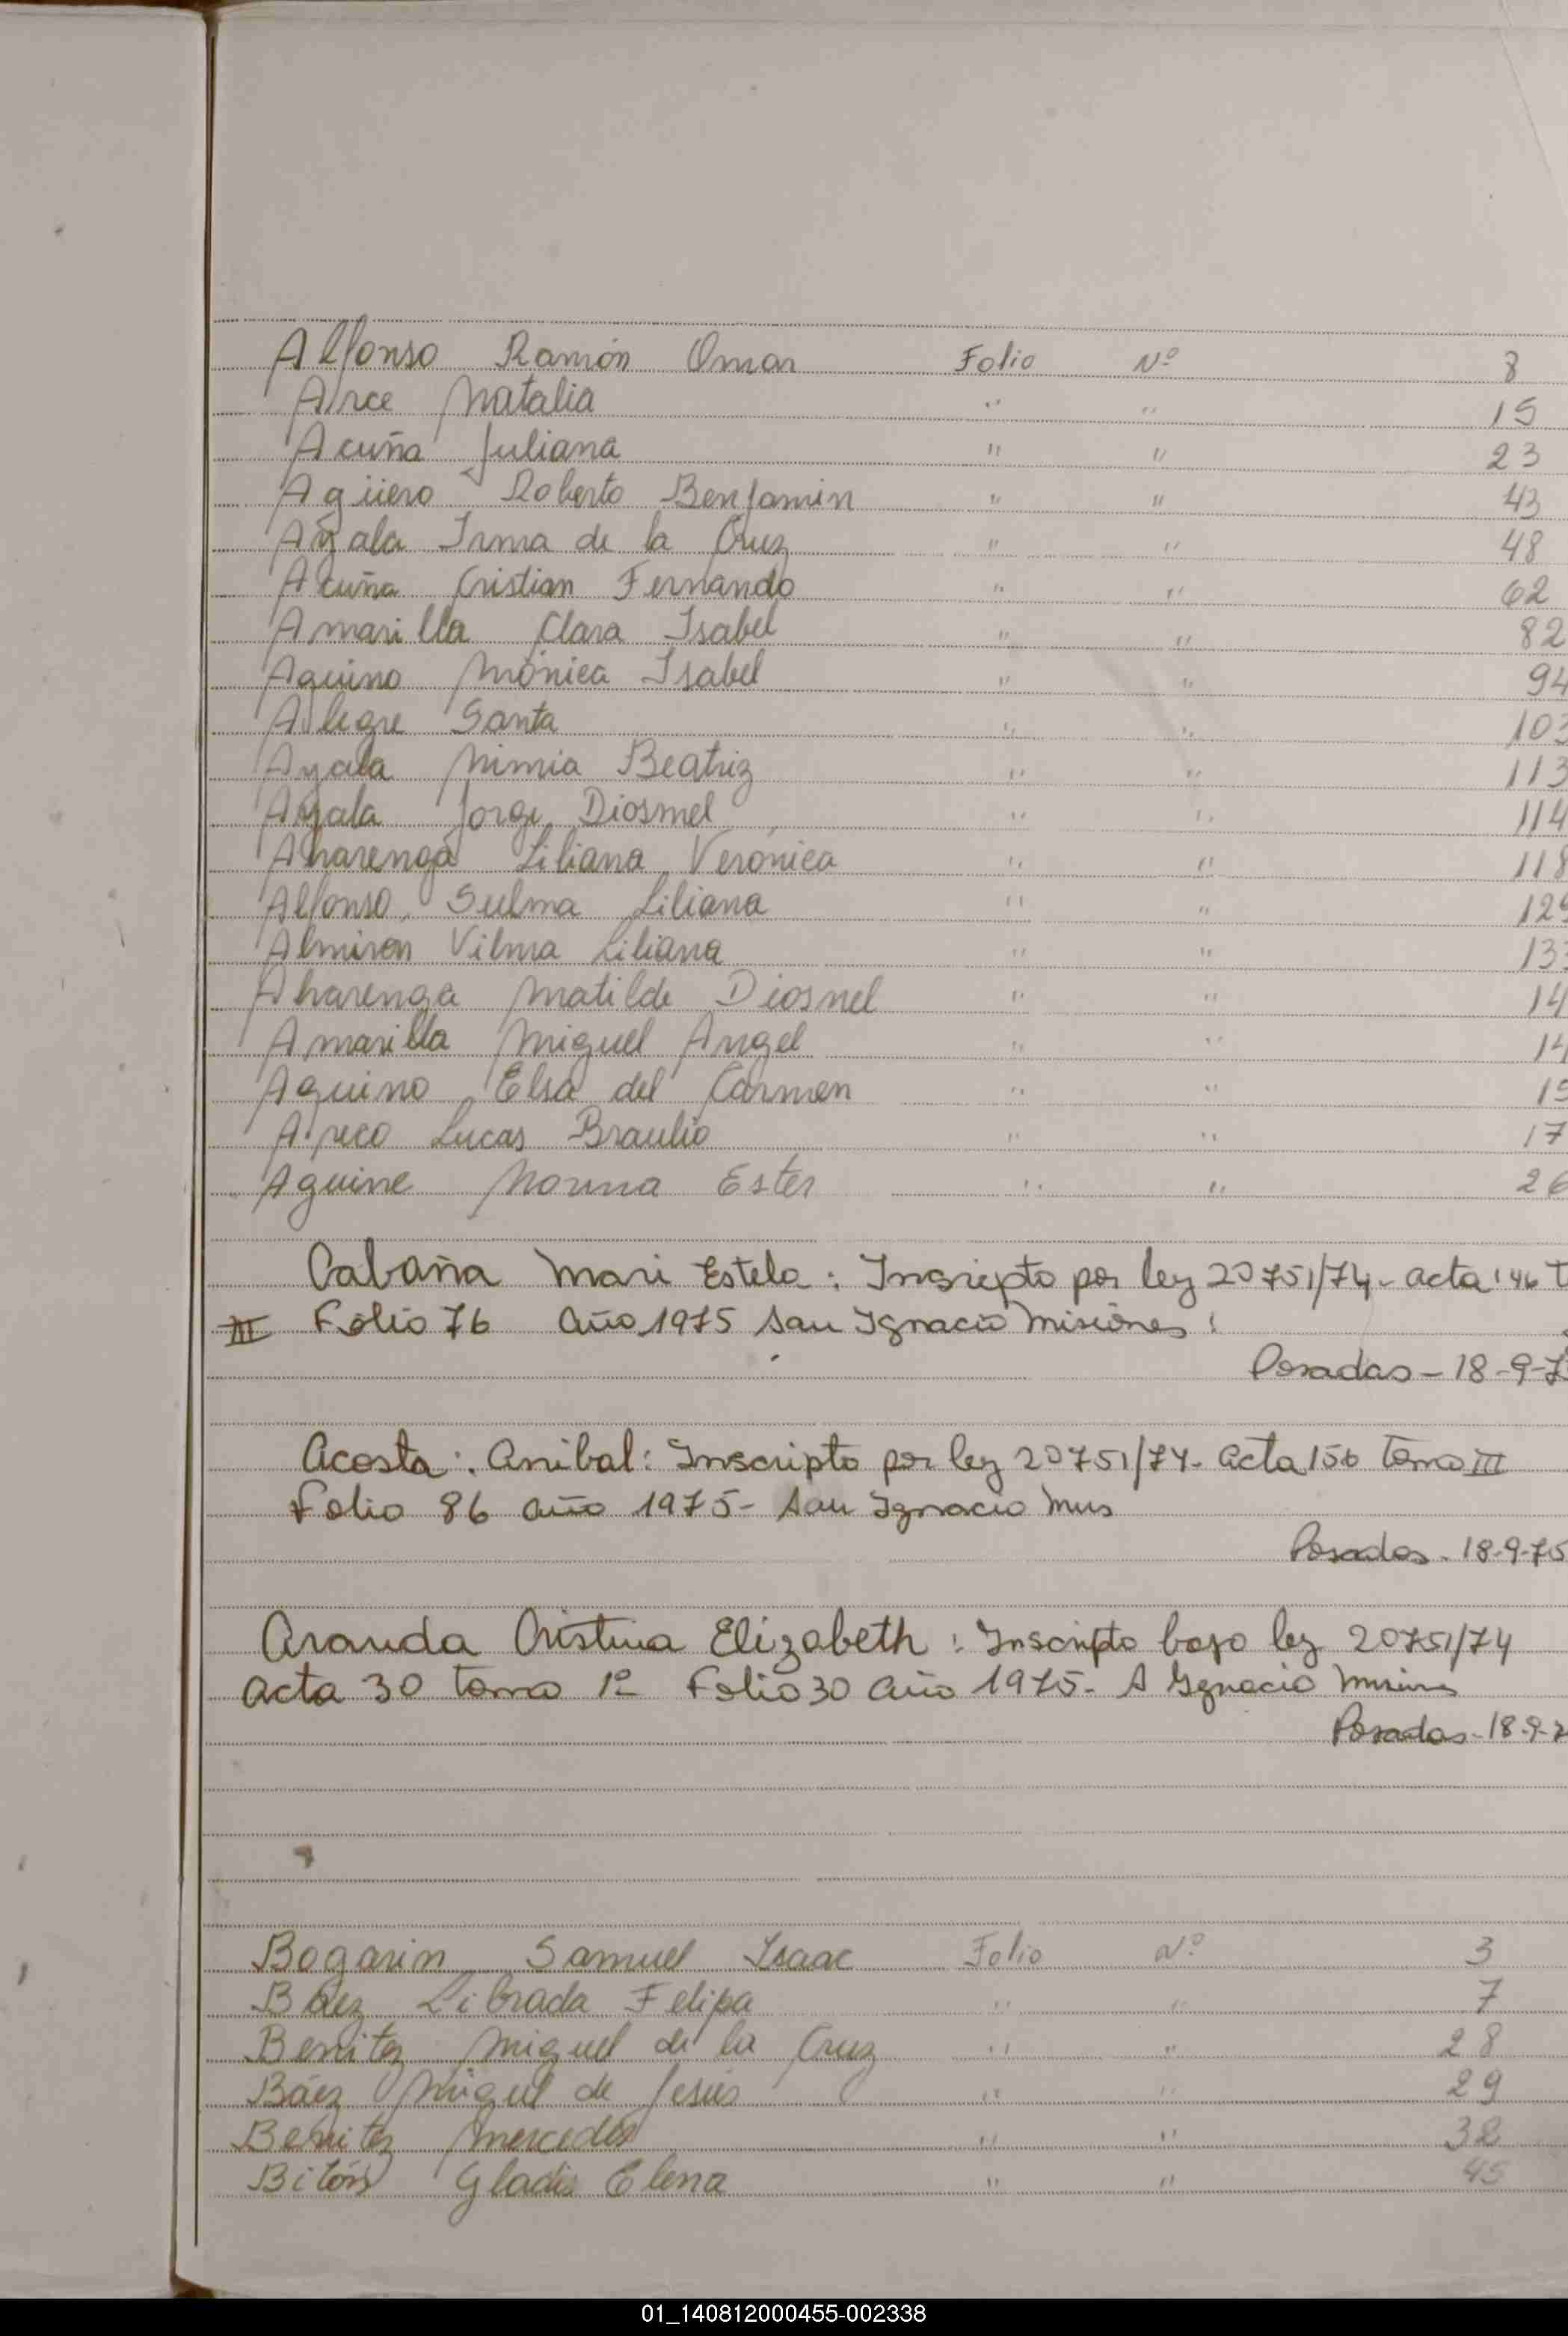 Alfonso Ramón Omar Folio Nº 8
Arce Natalia " " 15
Acuña Juliana " " 23
Agüero Roberto Benjamin " " 43
Ayala Irma de la Cruz " " 48
Acuña Cristian Fernando " " 62
Amarilla Clara Isabel " " 82
Aquino Mónica Isabel " " 94
Alegre Santa " " 103
Ayala Mimia Beatriz " " 113
Ayala Jorge Diosmel " " 114
Alvarenga Liliana Verónica " " 118
Alfonso, Sulma Liliana " " 129
Almiron Vilma Liliana " " 13
Alvarenga Matilde Diosnel " " 14
Amarilla Miguel Angel " " 14
Aquino Elsa del Carmen " " 15
Lucas Braulio " " 17
Aguirre Norma Ester " " 26
Cabaña Mari Estela: Inscripto por ley 20751/74- acta 146 T
III Folio 76 año 1975 San Ignacio Misiones
Posadas - 18-9-7
Acosta: Anibal: Inscripto por ley 20751/74- acta 156 tomo III
Folio 86 año 1975- San Ignacio Mns
Posadas - 18-9-75
Aranda Cristina Elizabeth: Inscripto bajo ley 20751/74
acta 30 tomo 1º Folio 30 año 1975- S Ignacio Misiones
Posadas - 18-9-7
Bogarin Samuel Isaac Folio Nº 3
Báez Librada Felipa " " 7
Benitez Miguel de la Cruz " " 28
Báez Miguel de Jesús " " 29
Benitez Mercedes " " 32
Bitón Gladis Elena " " 45
01_140812000455-002338